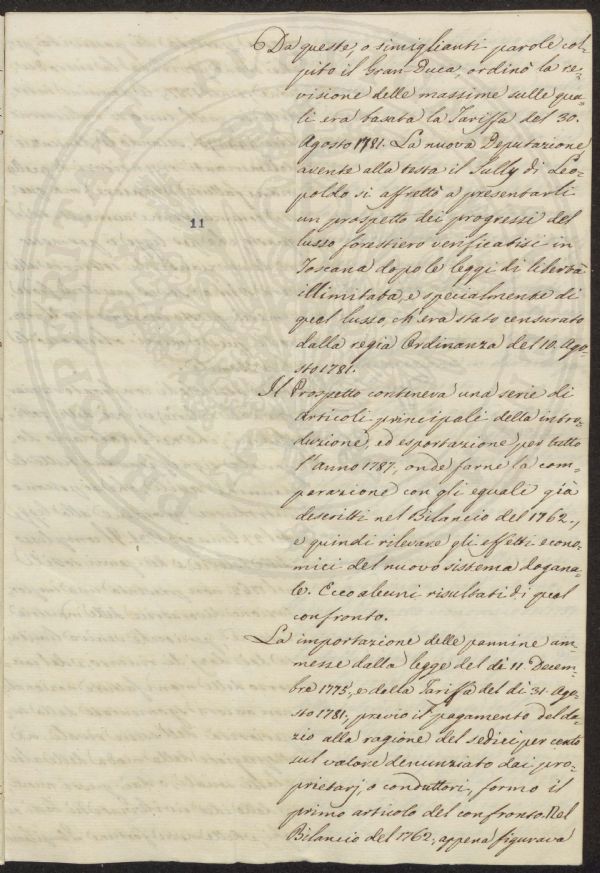 Da queste, o simiglianti parole col-
pito il Gran-Duca, ordinò la re-
visione delle massime sulle qua-
li era basata la Tariffa del 30.
Agosto 1781. La nuova Deputazione
avente alla testa il Sully di Leo-
poldo si affrettò a presentarli
un prospetto dei progressi del
11
lusso forestiero verificatisi in
Toscana dopo le leggi di libertà
illimitata, e specialmente di
quel lusso, ch'era stato censurato
dalla regia Ordinanza del 10. Ago-
sto 1781.
Il Prospetto conteneva una serie di
articoli principali della intro-
duzione, ed esportazione per tutto
l'anno 1787, onde farne la com-
parazione con gli eguali già
descritti nel Bilancio del 1762.,
e quindi rilevare gli effetti econo-
mici del nuovo sistema dogana-
le. Ecco alcuni risultati di quel
confronto.
La importazione delle pannine am-
messe dalla legge del dì 11 Decem-
bre 1775, e dalla Tariffa del dì 31. Ago-
sto 1781., previo il pagamento del da-
zio alla ragione del sedici per cento
sul valore denunziato dai pro-
prietarj, o conduttori, formo il
primo articolo del confronto. Nel
Bilancio del 1762., appena figurava